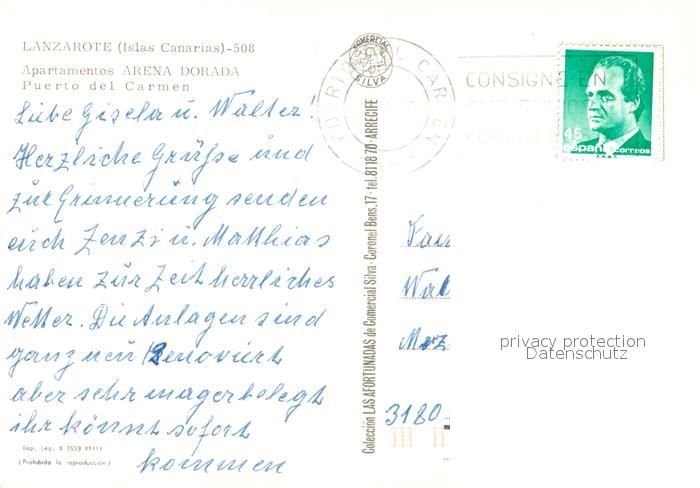 LANZAROTE (Islas Canarias)-508
Apartamentos ARENA DORADA
Puerto del Carmen
Liebe Gisela u. Walter!
Herzliche Grüße und
zur Erinnerung senden
euch Zenzi u. Matthias
haben zur Zeit herrliches
Wetter. Die Anlagen sind
ganz neu Renoviert
aber sehr mager belegt
ihr könnt sofort
kommen
Dep. Leg. B 7559 XXIII
(Prohibida la reproducción)
Colección LAS AFORTUNADAS de Comercial Silva - Coronel Bens, 17 - tel. 81 18 70 - ARRECIFE
COMERCIAL SILVA
CONSIGNE EN
45
españa correos
Fam
Wal
Merz
3180
privacy protection
Datenschutz